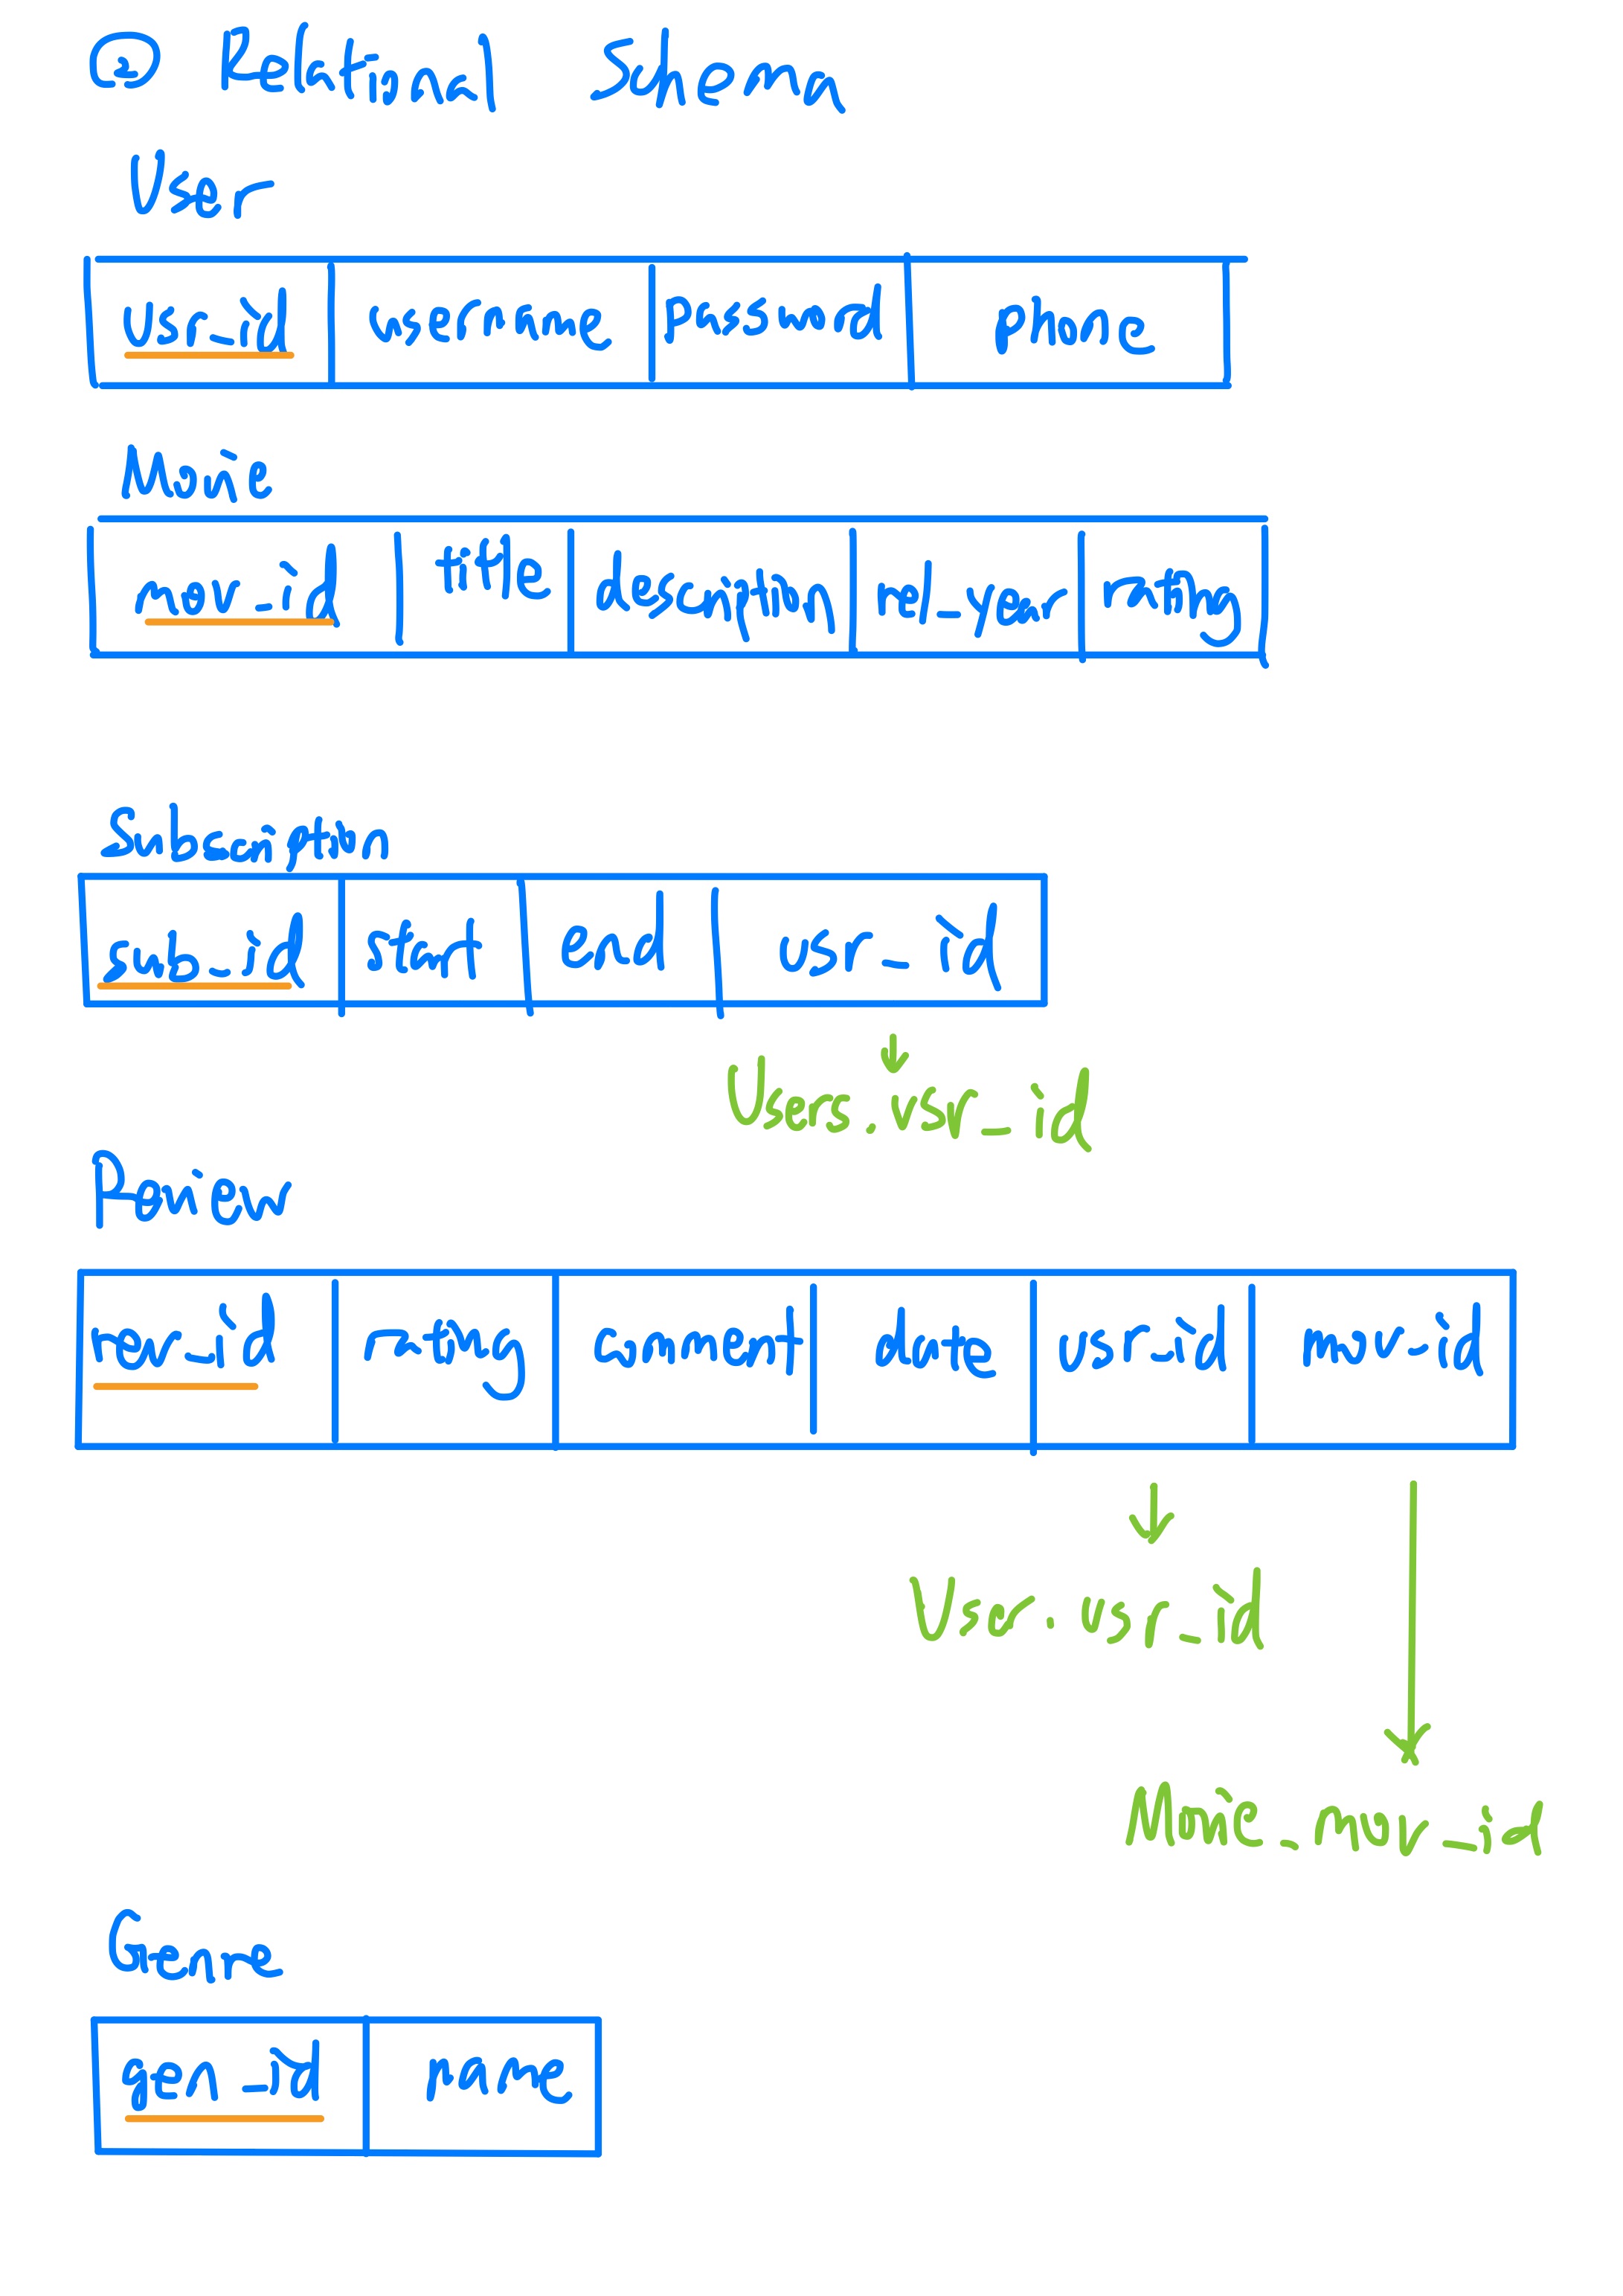 ② Relational Schema
User
usr_id username password phone
Movie
mov_id title description rel_year rating
Subscription
sub_id start end usr_id
Users.usr_id
Review
rev_id rating comment date usr_id mov_id
User.usr_id
Movie_mov_id
Genre
gen_id name